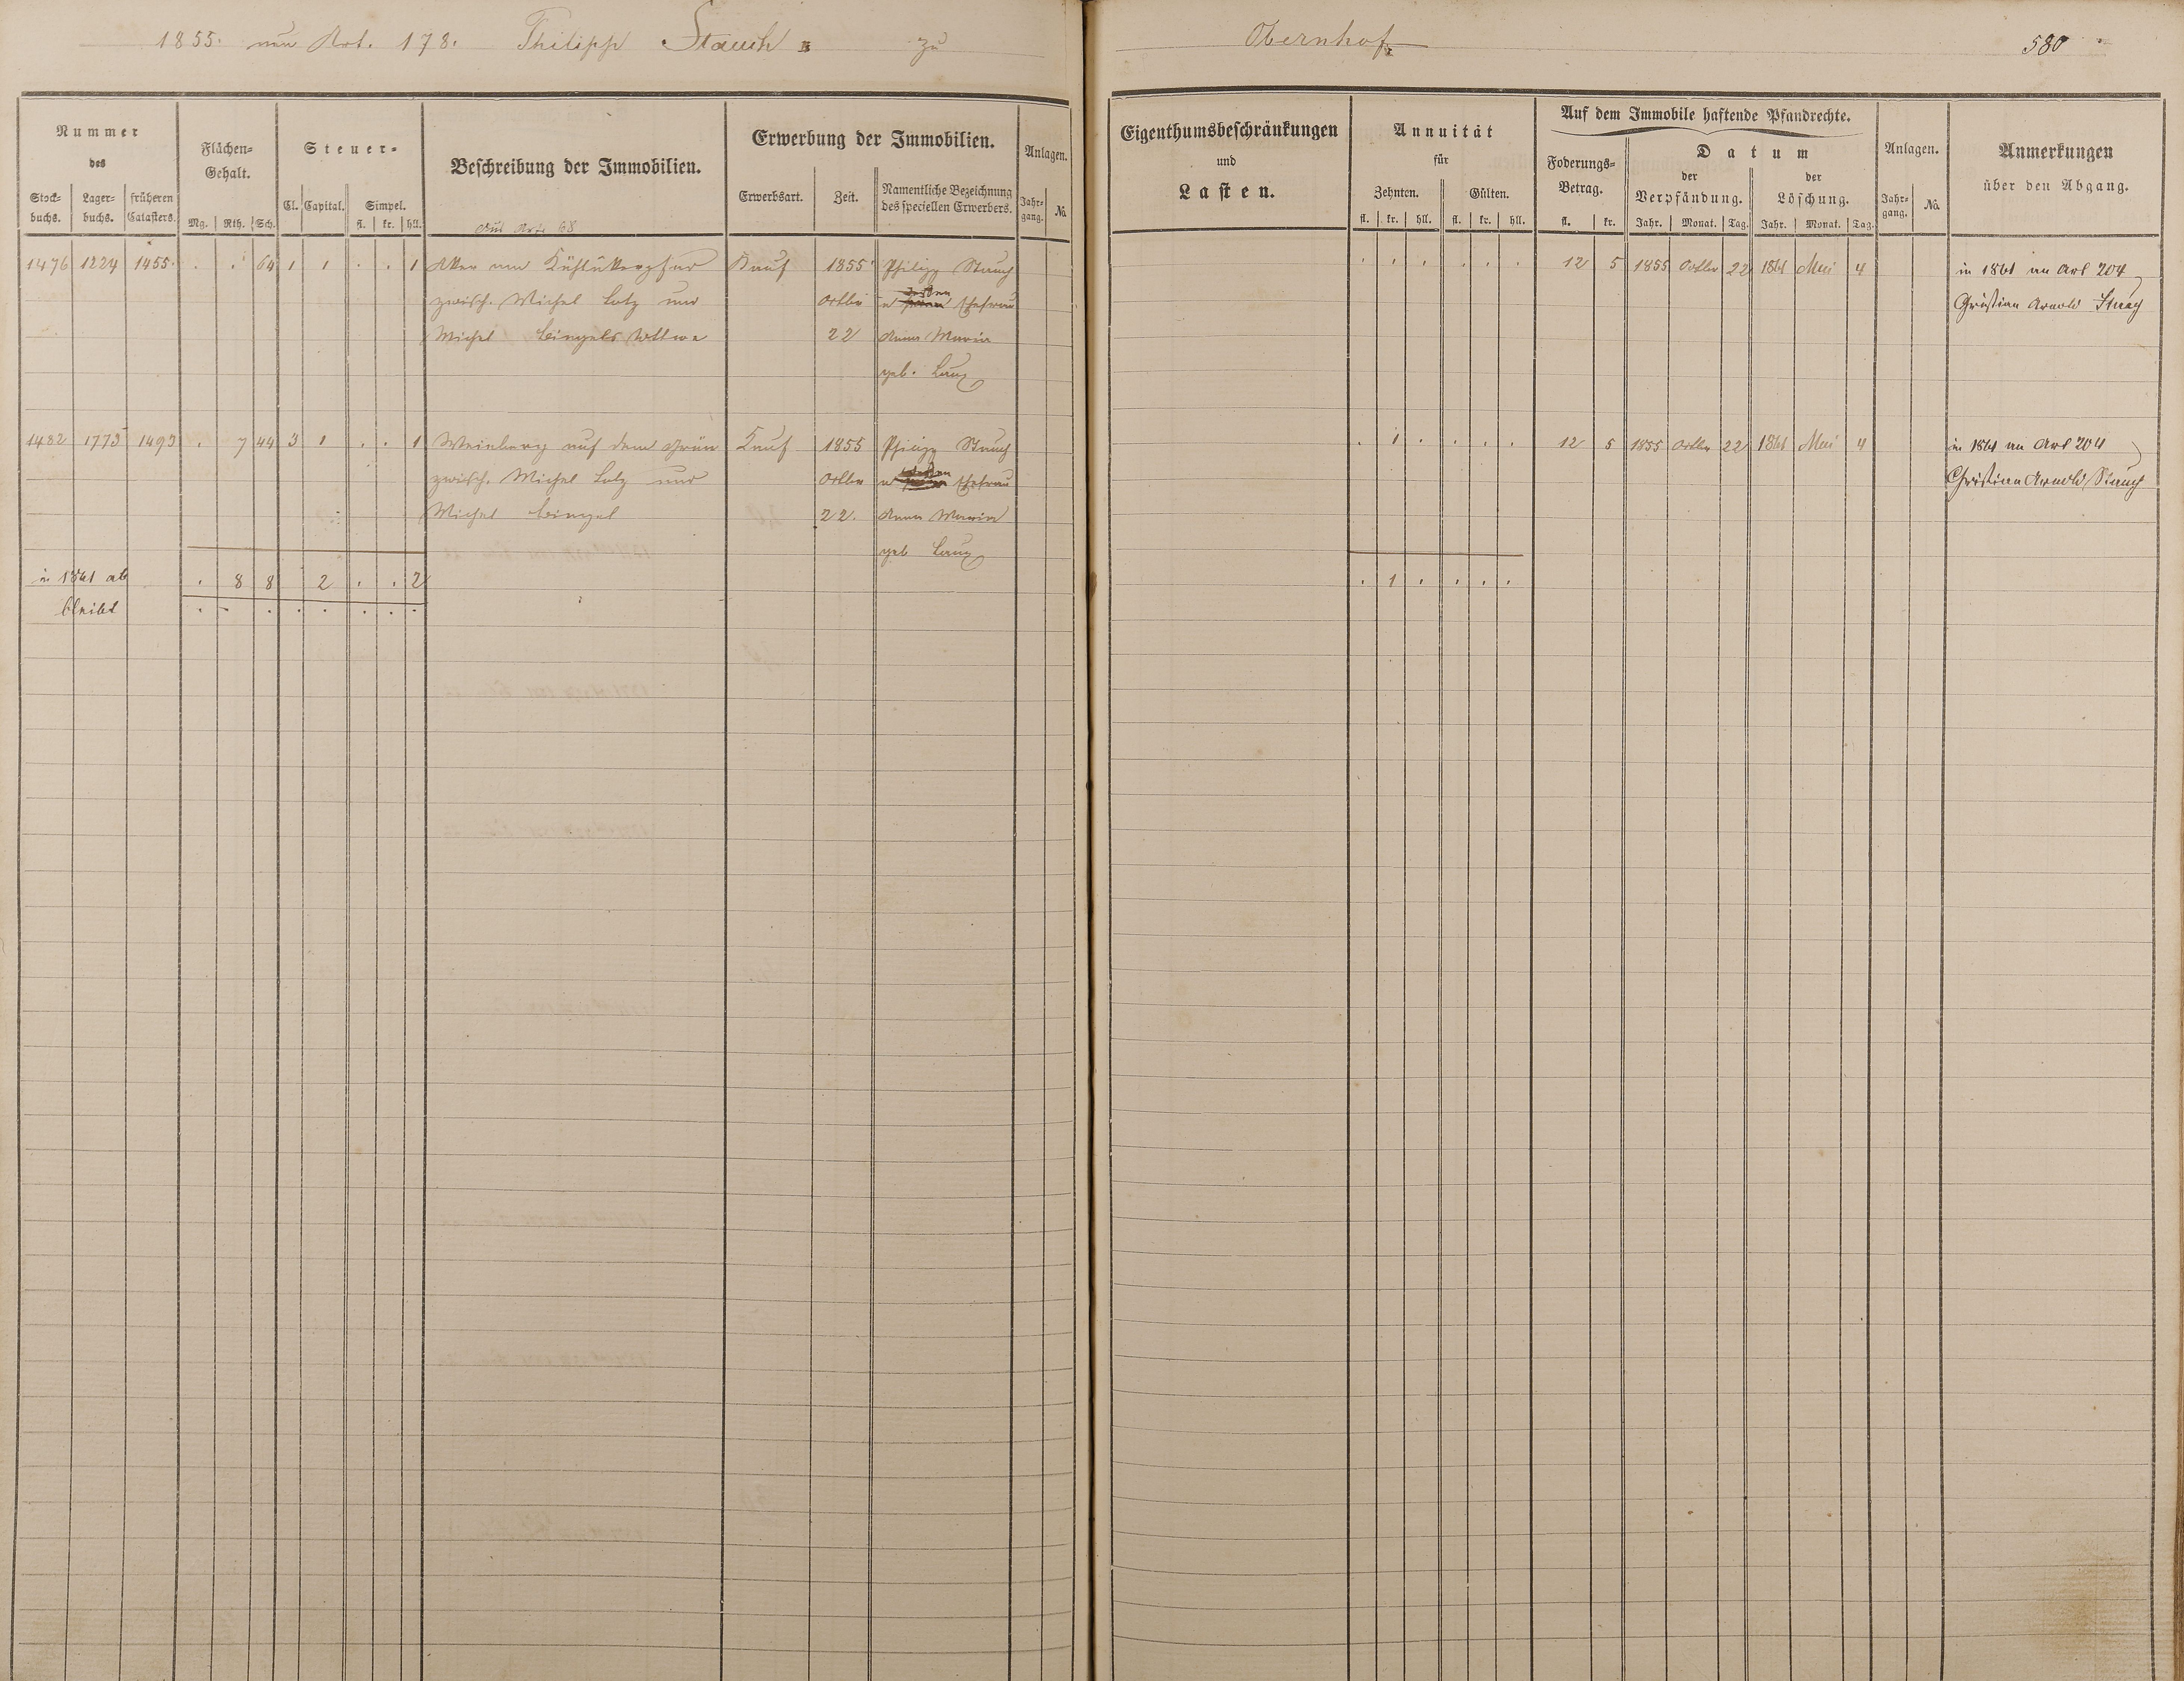 1855. Art. 178. Philipp Stauch zu Obernhof 580
Nummer des
Stockbuchs. Lagerbuchs. früheren Catasters.
Flächen-Gehalt.
Mg. Rth. Sch.
Steuer-
Cl. Capital. Simpel.
fl. kr. hll.
Beschreibung der Immobilien.
aus Art. 68
Erwerbung der Immobilien.
Erwerbsart. Zeit. Namentliche Bezeichnung des speciellen Erwerbers.
Anlagen.
Jahrgang. No.
Eigenthumsbeschränkungen
und
Lasten.
Annuität
für
Zehnten. Gülten.
fl. kr. hll. fl. kr. hll.
Auf dem Immobile haftende Pfandrechte.
Foderungs-Betrag.
fl. kr.
Datum
der Verpfändung. der Löschung.
Jahr. Monat. Tag. Jahr. Monat. Tag.
Anlagen.
Jahrgang. No.
Anmerkungen
über den Abgang.
1476 1224 1455 . . 64 1 1 . . 1 Kauf 1855 Philipp Stauch 12 5 1855 Octbr 22 1861 Mai 4 in 1861 an Art 204
zwisch. Michel Lotz und Octbr u dessen Ehefrau Christian Arnold Stauch
Michel Bingels Wittwe 22 Anna Maria
geb. Lang
1482 1773 1493 . 7 44 3 1 . . 1 Weinberg auf dem Kauf 1855 Philipp Stauch . 1 . . . . 12 5 1855 Octbr 22 1861 Mai 4 in 1861 an Art 204
zwisch. Michel Lotz und Octbr u dessen Ehefrau Christian Arnold Stauch
Michel Bingel 22. Anna Maria
geb Lang
in 1861 ab . 8 8 2 . . 2 . 1 . . . .
bleibt . . . . . . . .